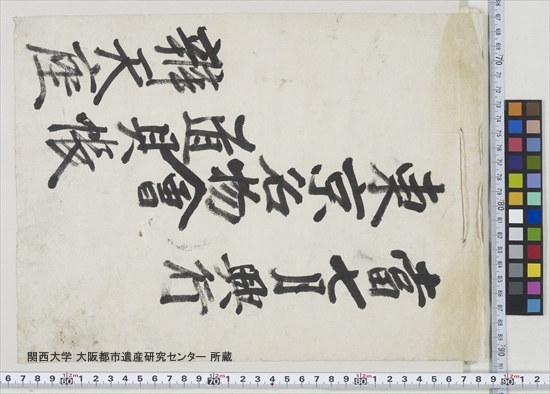 當七月興行
東京名物會
道具帳
辨天座
関西大学 大阪都市遺産研究センター 所蔵